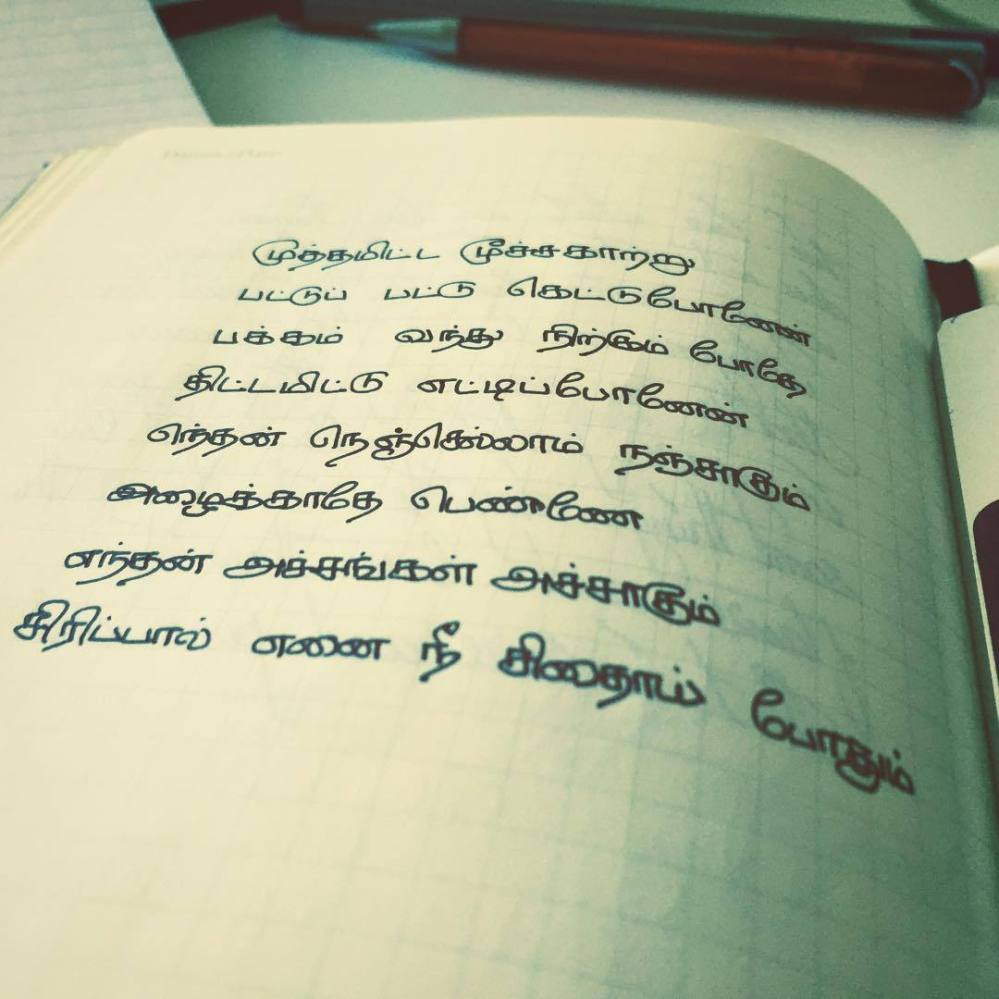 முத்தமிட்ட மூச்சுகாற்று
பட்டுப் பட்டு கெட்டுபோனேன்
பக்கம் வந்து நிற்கும் போதே
திட்டமிட்டு எட்டிப்போனேன்
எந்தன் நெஞ்செல்லாம் நஞ்சாகும்
அழைக்காதே பெண்ணே
எந்தன் அச்சங்கள் அச்சாகும்
சிரிப்பால் எனை நீ சிதைதாய் போதும்